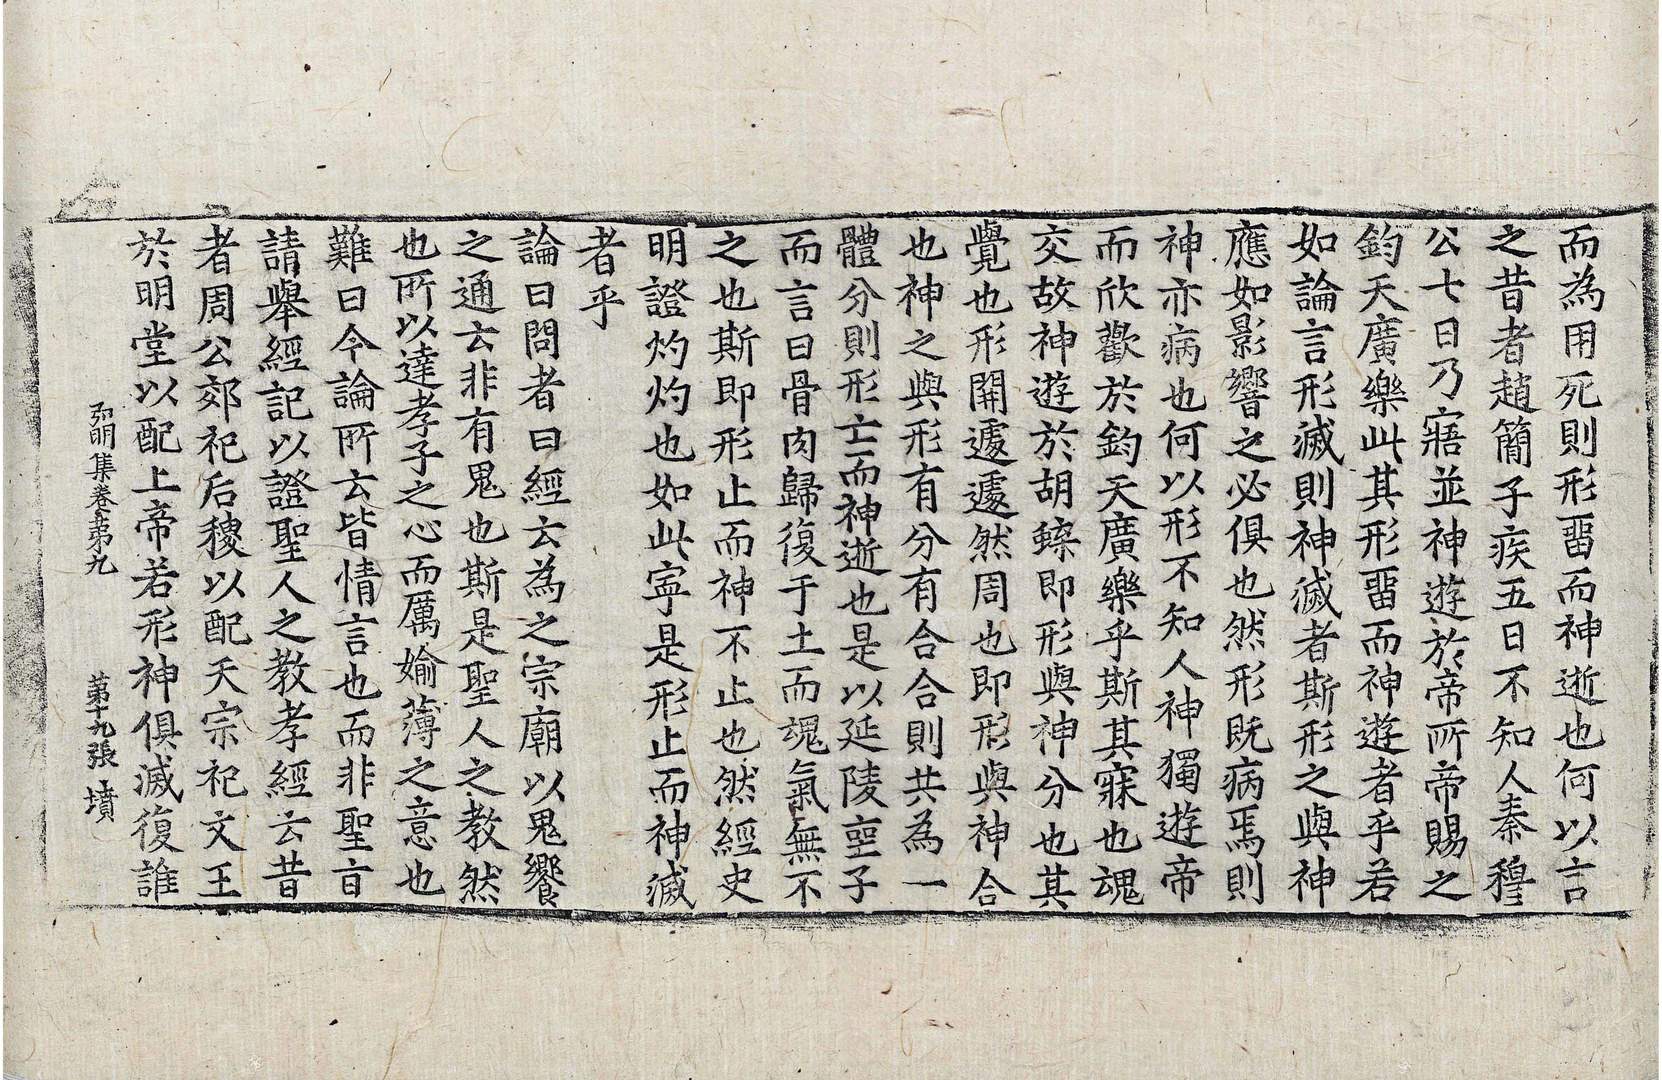 而為用死則形畱而神逝也何以言
之昔者趙簡子疾五日不知人秦穆
公七日乃寤並神遊於帝所帝賜之
鈞天廣樂此其形畱而神遊者乎若
如論言形滅則神滅者斯形之與神
應如影響之必俱也然形既病焉則
神亦病也何以形不知人神獨遊帝
而欣歡於鈞天廣樂乎斯其寐也魂
交故神遊於胡䗥即形與神分也其
覺也形開遽遽然周也即形與神合
也神之與形有分有合合則共為一
體分則形亡而神逝也是以延陵窆子
而言曰骨肉歸復于土而魂氣無不
之也斯即形止而神不止也然經史
明證灼灼也如此寧是形止而神滅
者乎
論曰問者曰經云為之宗廟以鬼饗
之通云非有鬼也斯是聖人之教然
也所以達孝子之心而厲媮薄之意也
難曰今論所云皆情言也而非聖旨
請舉經記以證聖人之教孝經云昔
者周公郊祀后稷以配天宗祀文王
於明堂以配上帝若形神俱滅復誰
弘明集卷第九 第十九張 墳